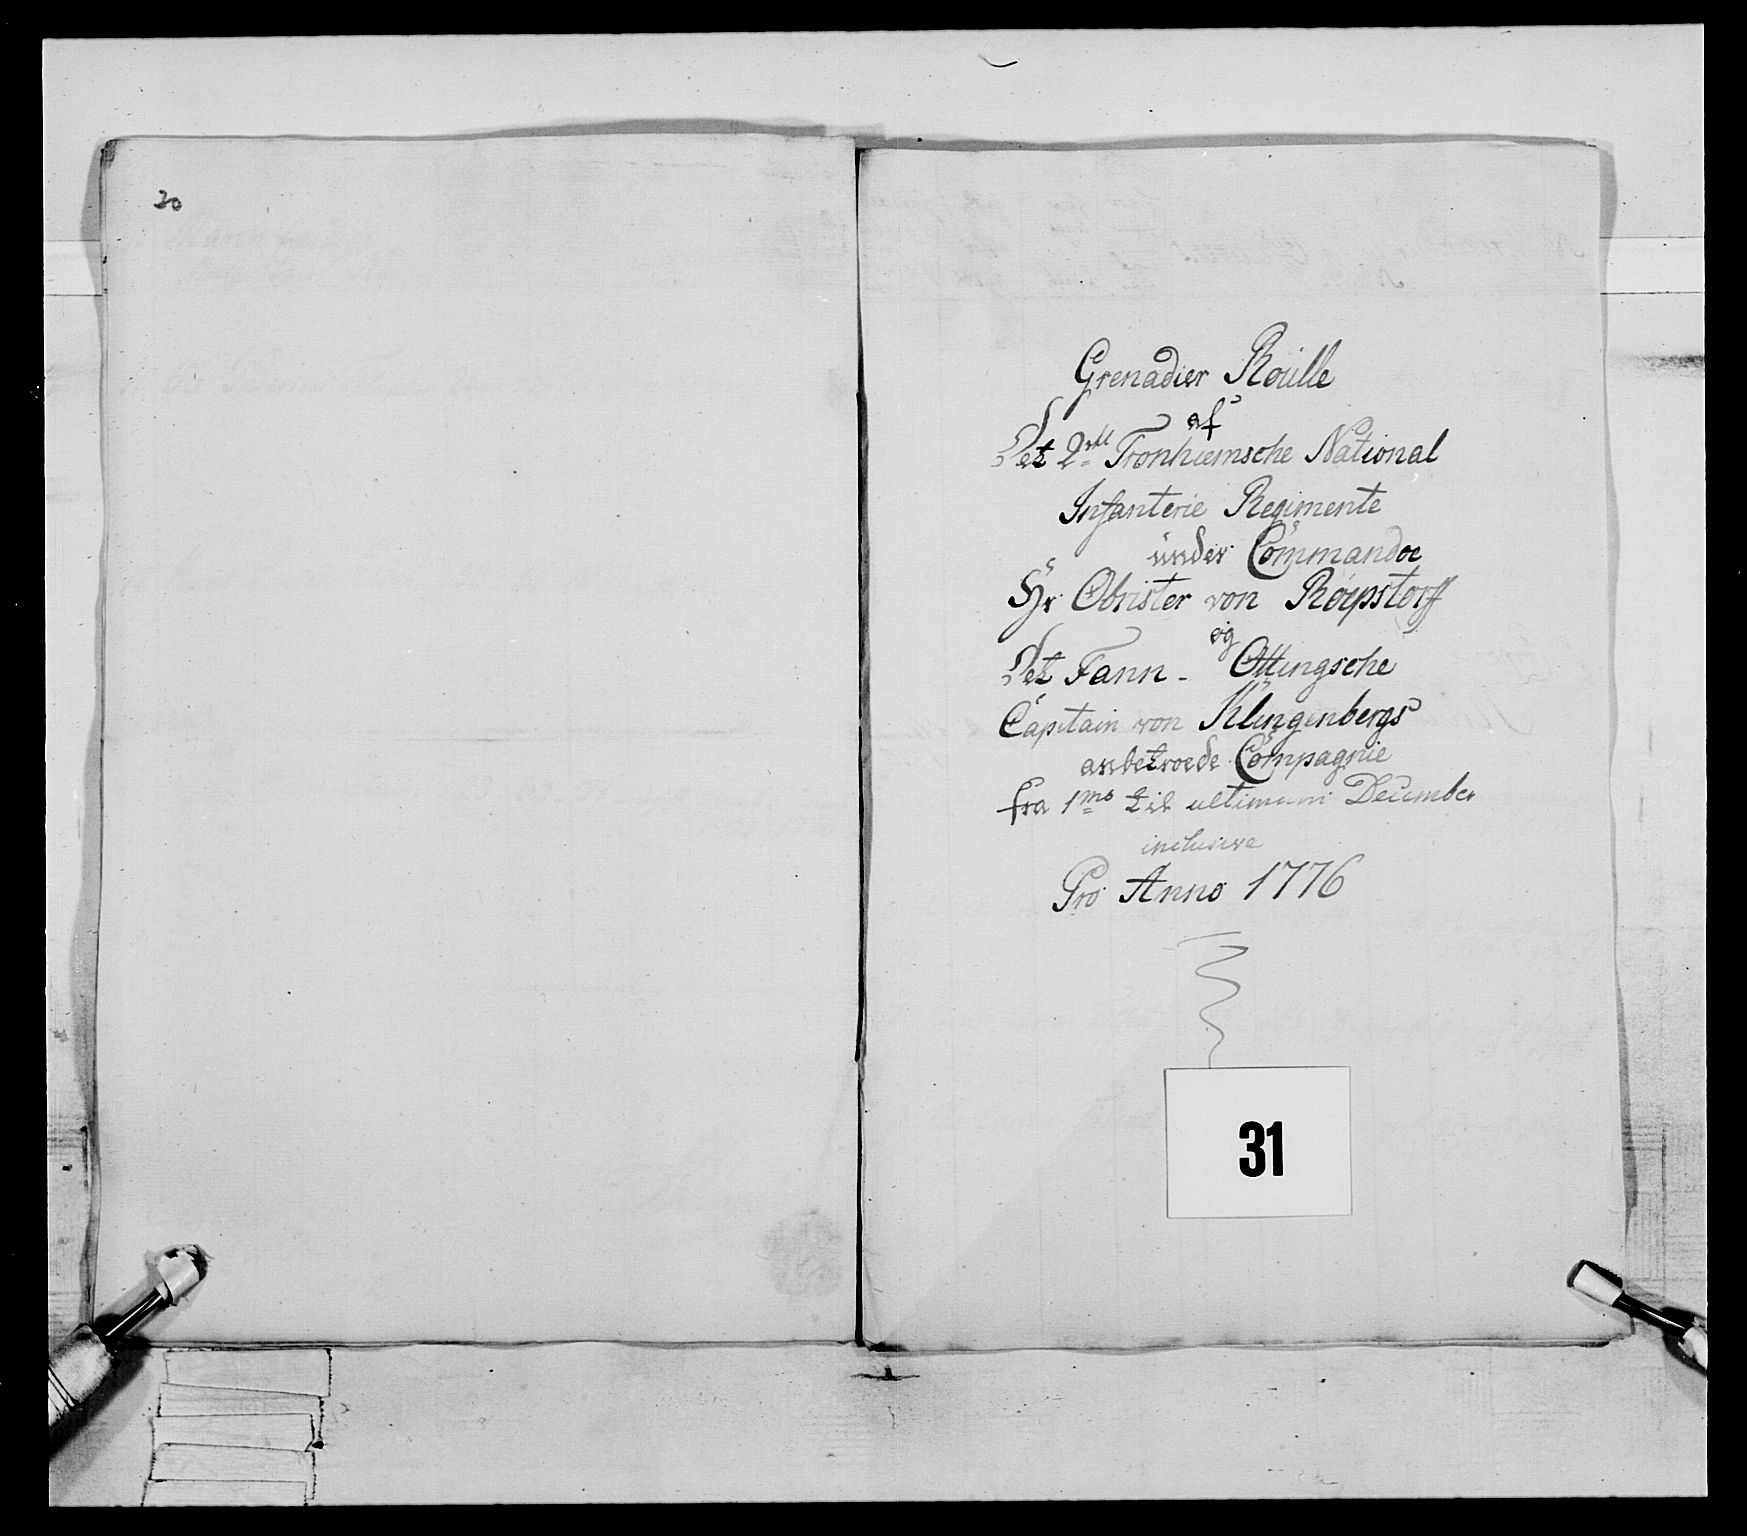 30
Grenadier Roulle
af
Det 2det Tronhiemsche National
Infanterie Regimente
under Commandoe
Hr Obrister von Röepstorff
og
Det Fann - Ottingsche
Capitain von Klingenbergs
anbetroede Compagnie
fra 1mo til ultimum December
inclusive
Pro Anno 1776
31